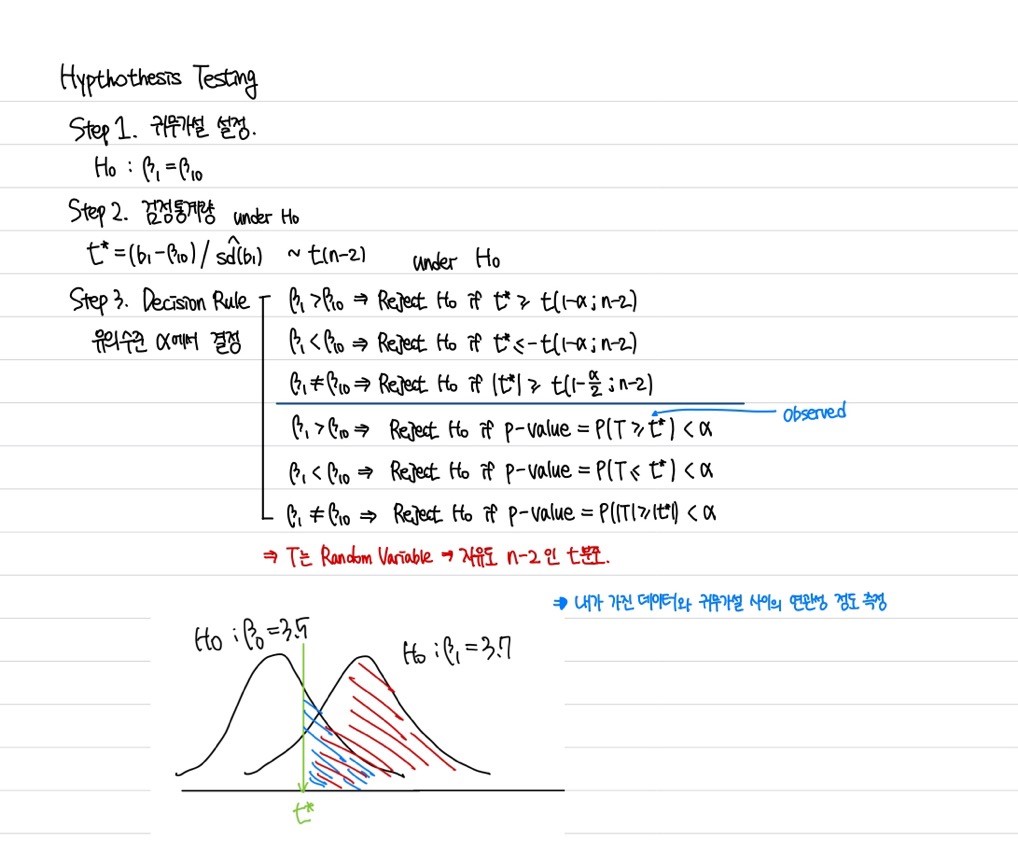 Hypthothesis Testing
Step 1. 귀무가설 설정.
H₀ : β₁ = β₁₀
Step 2. 검정통계량 under H₀
t* = (b₁-β₁₀) / sd̂(b₁) ~ t(n-2) under H₀
Step 3. Decision Rule
유의수준 α에서 결정
β₁ > β₁₀ ⇒ Reject H₀ if t* ≥ t(1-α; n-2)
β₁ < β₁₀ ⇒ Reject H₀ if t* ≤ -t(1-α; n-2)
β₁ ≠ β₁₀ ⇒ Reject H₀ if |t*| ≥ t(1-α/2; n-2)
observed
β₁ > β₁₀ ⇒ Reject H₀ if p-value = P(T ≥ t*) < α
β₁ < β₁₀ ⇒ Reject H₀ if p-value = P(T ≤ t*) < α
β₁ ≠ β₁₀ ⇒ Reject H₀ if p-value = P(|T| ≥ |t*|) < α
⇒ T는 Random Variable → 자유도 n-2인 t분포.
⇒ 내가 가진 데이터와 귀무가설 사이의 연관성 정도 측정
H₀ : β₀ = 3.5
H₀ : β₁ = 3.7
t*